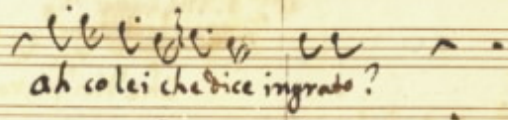 ah colei che dice ingrato?